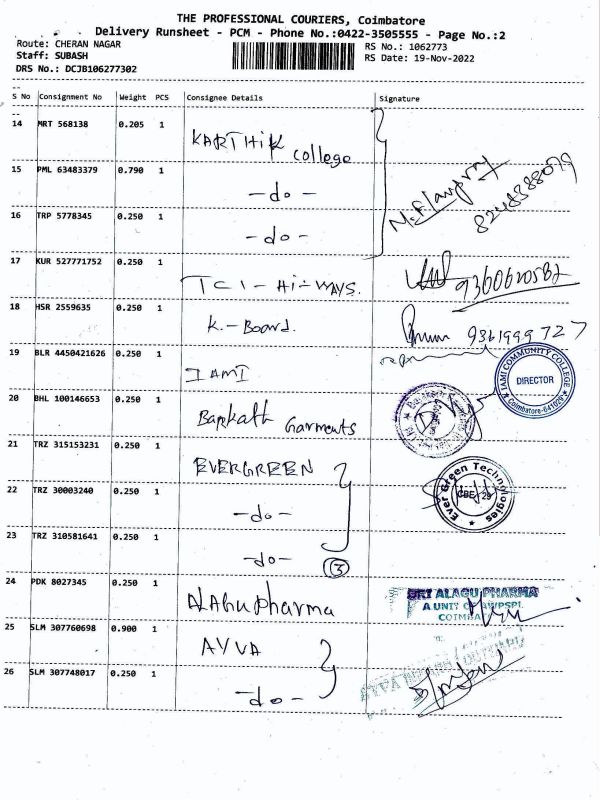 THE PROFESSIONAL COURIERS, Coimbatore
Delivery Runsheet - PCM - Phone No.:0422-3505555 - Page No.:2
Route: CHERAN NAGAR
RS No.: 1062773
Staff: SUBASH
RS Date: 19-Nov-2022
DRS No.: DCJB106277302
S No Consignment No Weight PCS Consignee Details Signature
14 MRT 568138 0.205 1 KARTHIK college
15 PML 63483379 0.790 1 -do-
8248388079
16 TRP 5778345 0.250 1 -do-
17 KUR 527771752 0.250 1 TCI-Hi-WAYS.
9360620587
18 HSR 2559635 0.250 1 K.-Board.
9361999727
19 BLR 4450421626 0.250 1 IAMI
IAMI COMMUNITY COLLEGE
DIRECTOR
Coimbatore-641029
20 BHL 100146653 0.250 1 Garments
21 TRZ 315153231 0.250 1 EVERGREEN
Ever Green Technologies
CBE 29
22 TRZ 30003240 0.250 1 -do-
23 TRZ 310581641 0.250 1 -do-
3
24 PDK 8027345 0.250 1 ALAGU pharma
SRI ALAGU PHARMA
A UNIT
25 SLM 307760698 0.900 1 AYVA
26 SLM 307748017 0.250 1 -do-